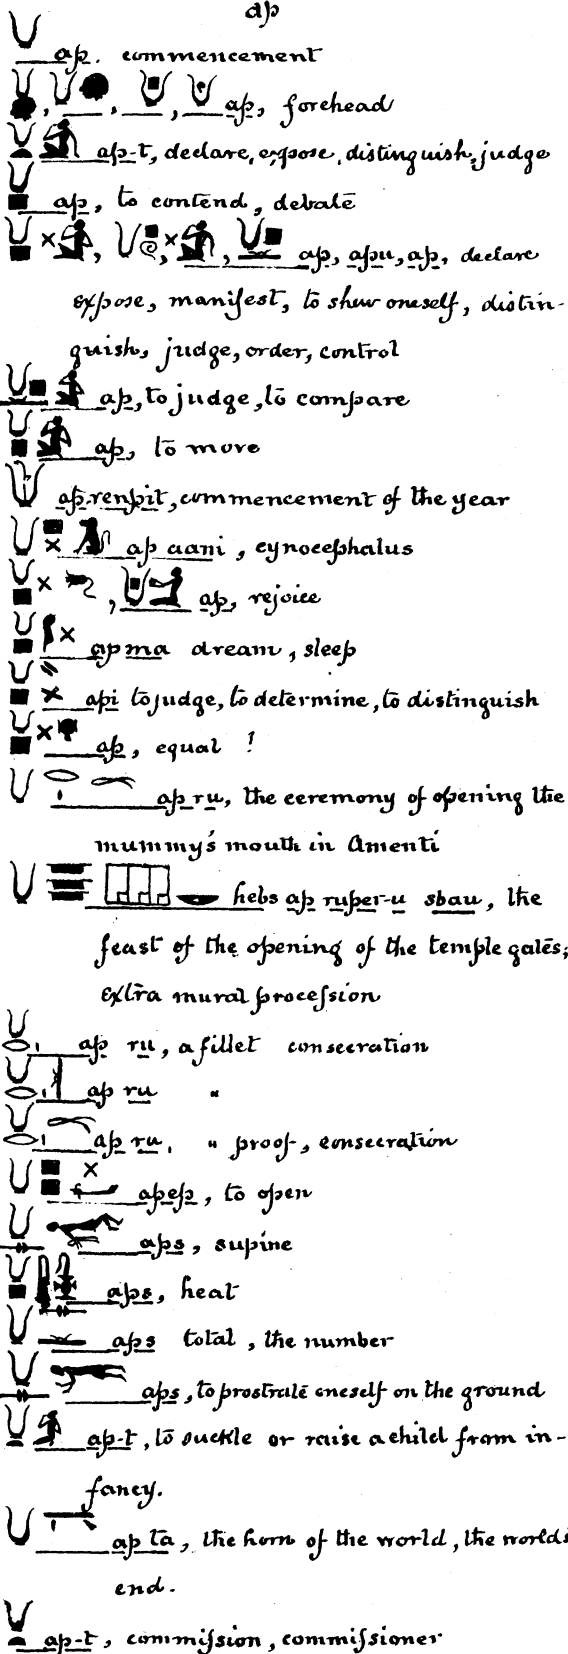 ap
ap. commencement
, , , ap, forehead
ap-t, declare, expose, distinguish, judge
ap, to contend, debate
, , , ap, apu, ap, declare
expose, manifest, to shew oneself, distin-
guish, judge, order, control
ap, to judge, to compare
ap, to move
ap. renpit, commencement of the year
ap aani, cynocephalus
, ap, rejoice
ap ma dream, sleep
api to judge, to determine, to distinguish
ap, equal !
ap ru, the ceremony of opening the
mummy's mouth in Amenti
hebs ap ruper-u sbau, the
feast of the opening of the temple gates;
extra mural procession
ap ru, a fillet consecration
ap ru "
ap ru, " proof, consecration
apep, to open
aps, supine
aps, heat
aps total, the number
aps, to prostrate oneself on the ground
ap-t, to suckle or raise a child from in-
fancy.
ap ta, the horn of the world, the worlds
end.
ap-t, commission, commissioner